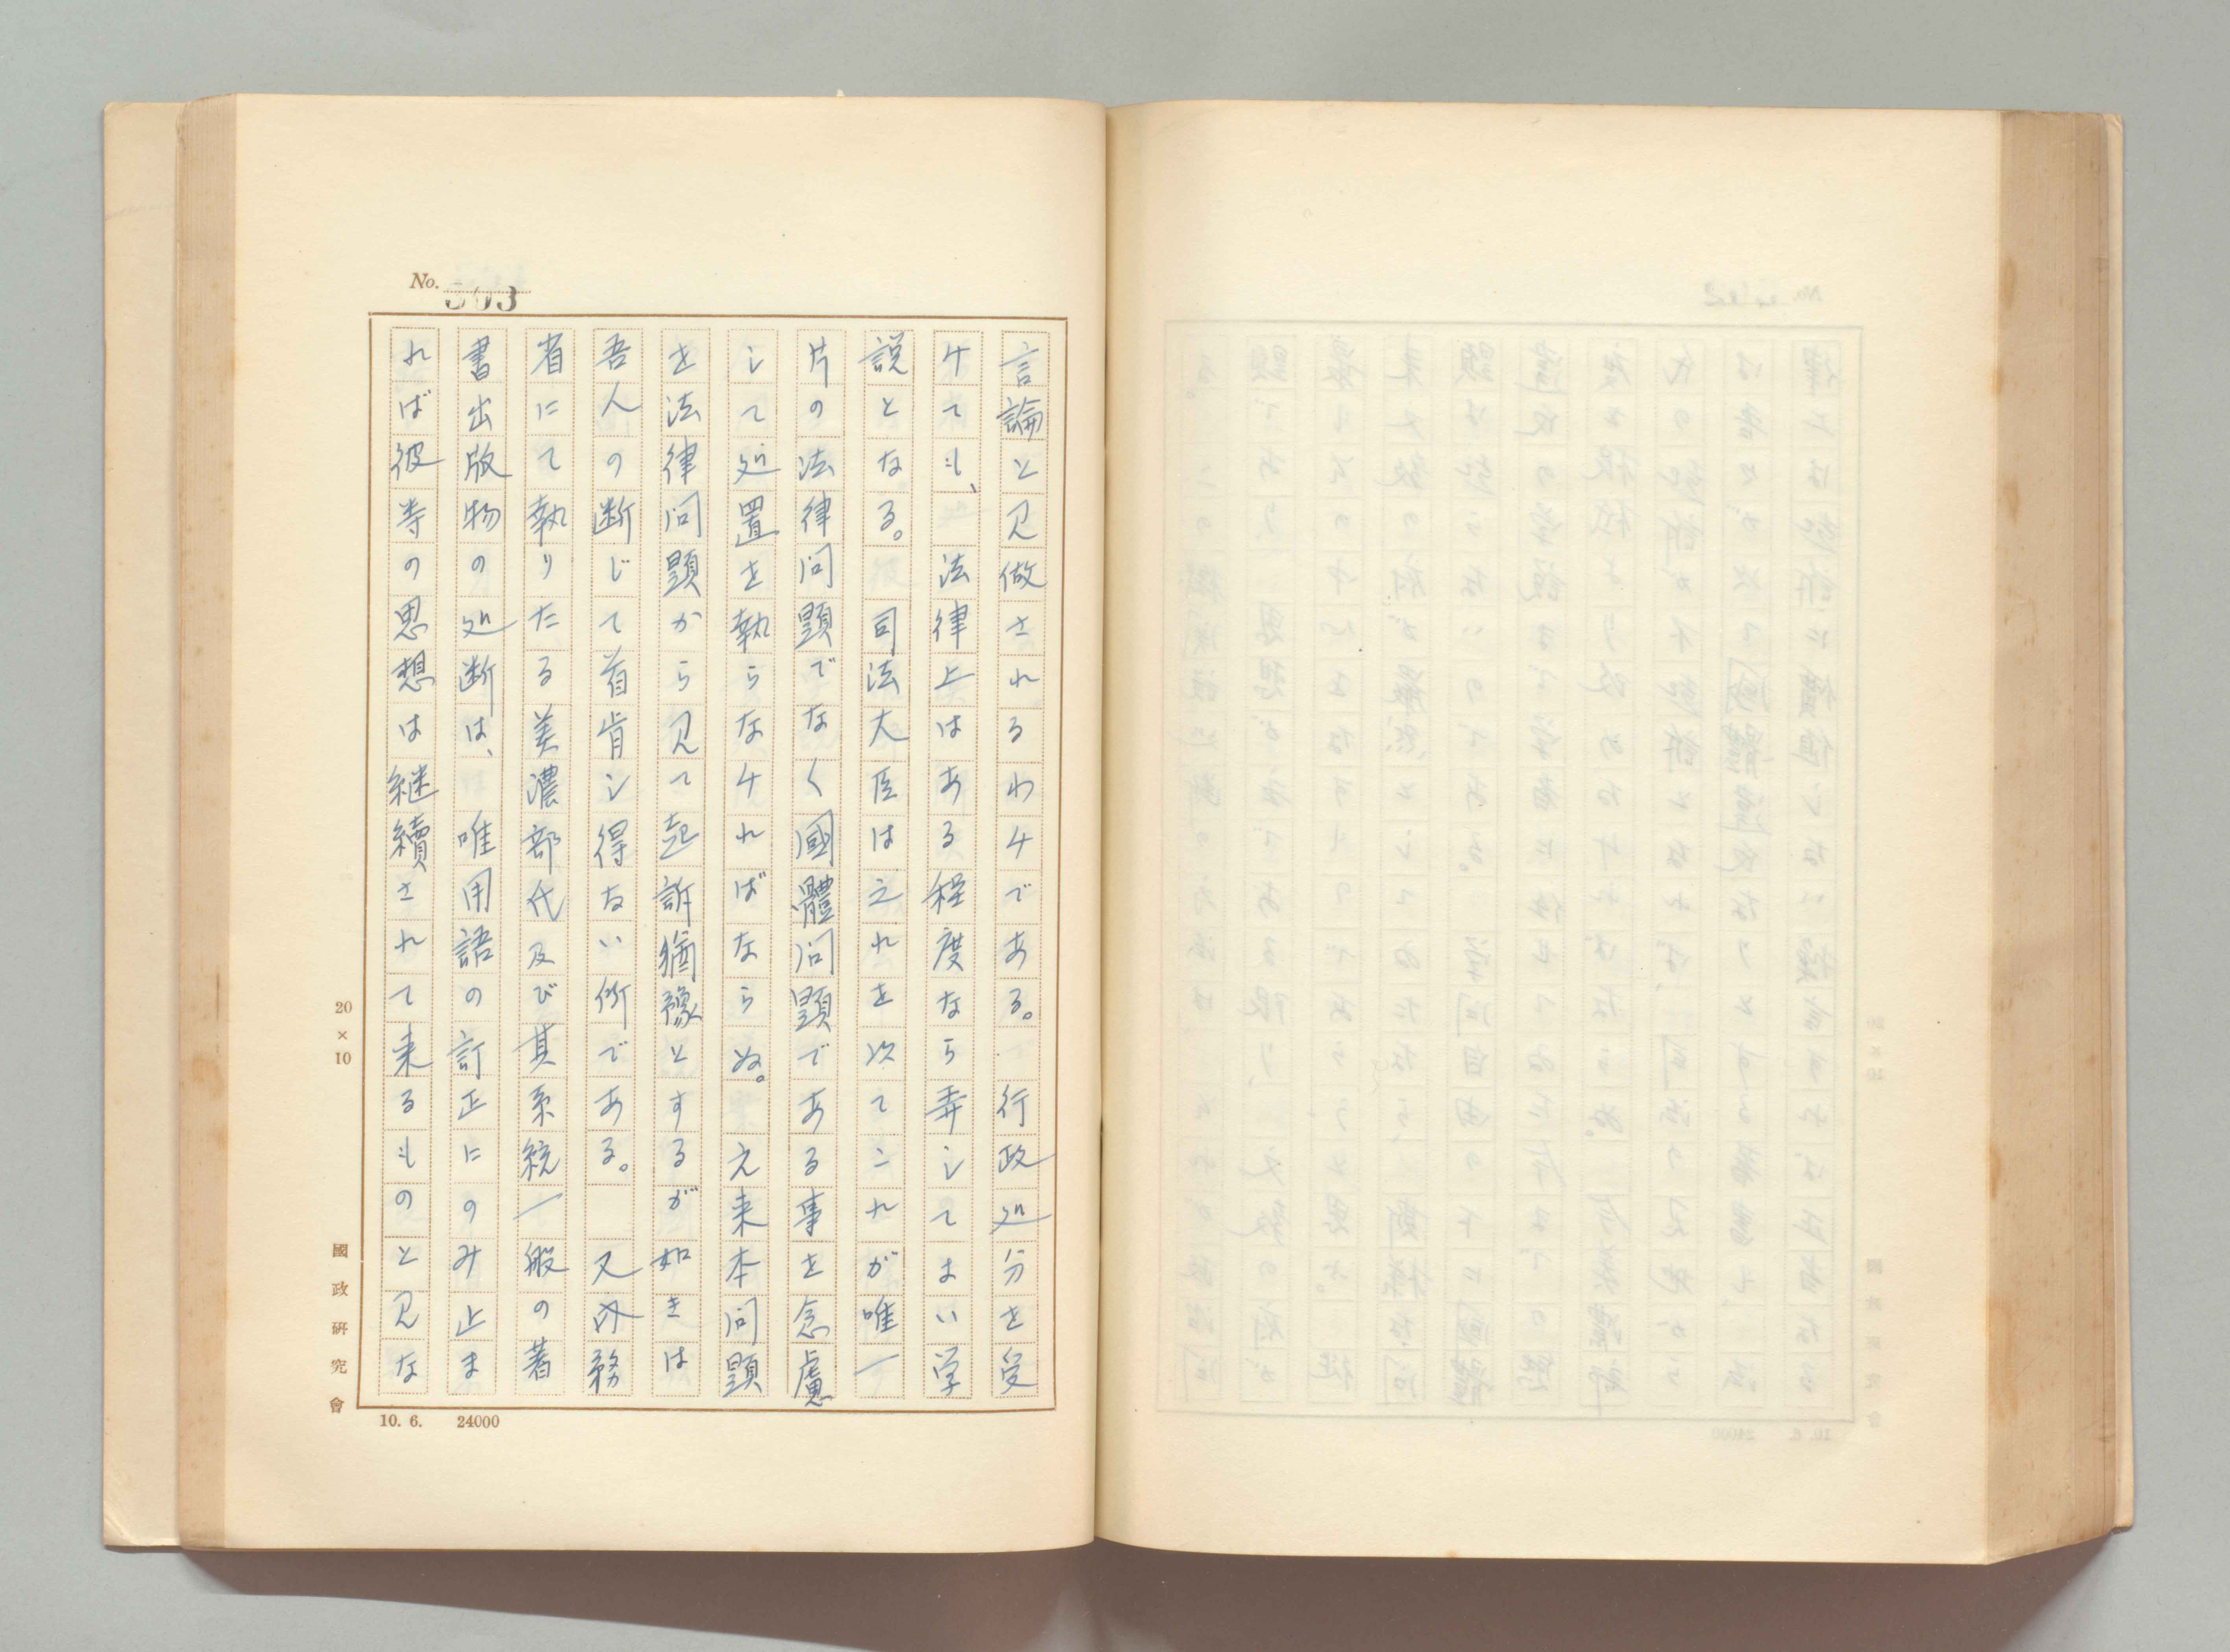 No. 503
言論と見做されるわけである。行政処分を受
けても、法律上はある程度なら弄してよい学
説となる。司法大臣は之れを以てこれが唯一
片の法律問題でなく國體問題である事を念慮
して処置を執らなければならぬ。元来本問題
を法律問題から見て起訴猶豫とするが如きは
吾人の断じて首肯し得ない所である。又内務
省にて執りたる美濃部氏及び其系統一般の著
書出版物の処断は、唯用語の訂正にのみ止ま
れば彼等の思想は継續されて来るものと見な
20×10
國政研究會
10. 6. 24000